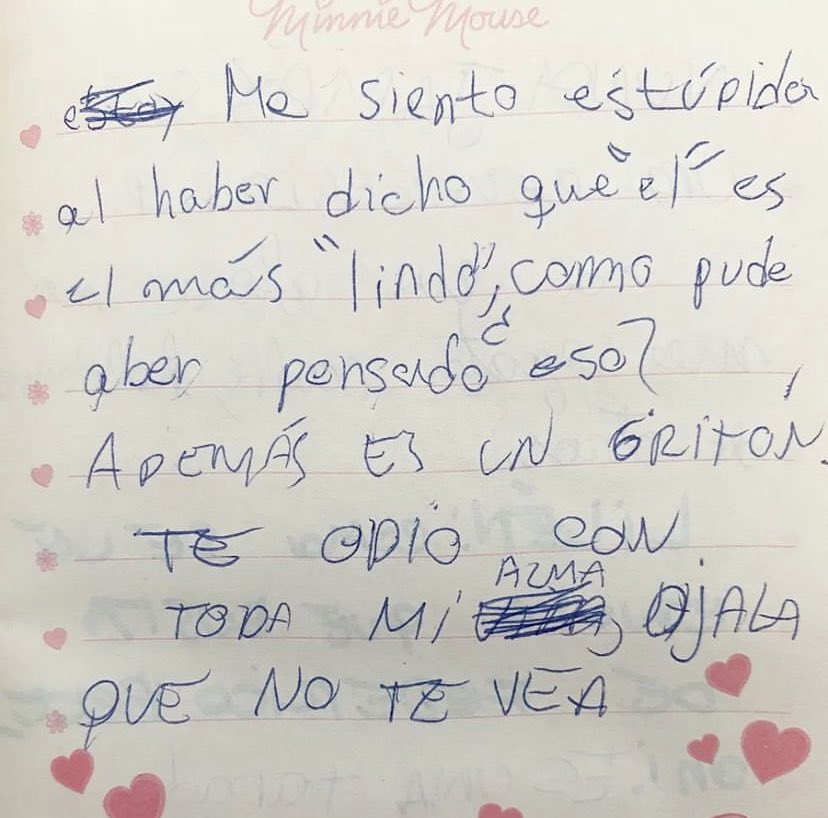 Minnie Mouse
Me siento estúpida
al haber dicho que "el" es
el más "lindo", como pude
aber pensado eso?
ADEMÁS ES UN GRITÓN.
TE ODIO CON
TODA MI ALMA, OJALA
QUE NO TE VEA